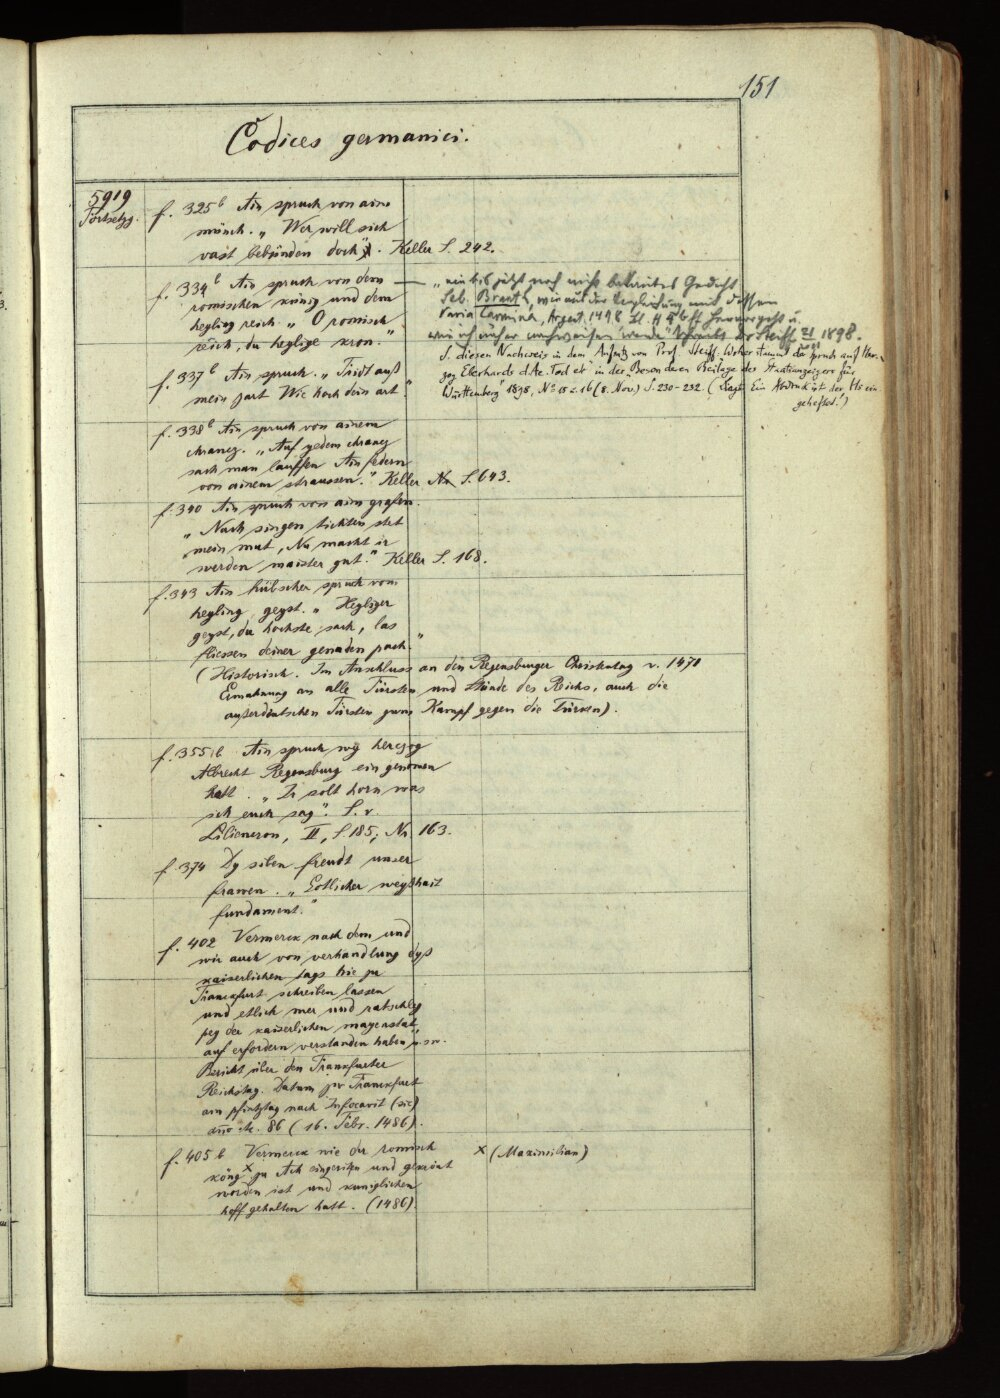 151
Codices germanici.
5919
Fortsetzg.
f. 325b Ain spruch von aim
münch. „Wer will sich
vast bekünden doch". Keller S. 242.
f. 334b Ain spruch von dem
romischen künig und dem
heyling reich. „O romisch
reich, du heylige kron."
— „ein bis jetzt noch nicht bekanntes Gedicht
Seb. Brants, wie aus der Vergleichung mit dessen
Varia Carmina, Argent. 1498 hervorgeht u.
wie ich näher nachweisen werde" schreibt Dr Steiff 1898.
S. diesen Nachweis in dem Aufsatz von Prof. Steiff: Woher stammt der Spruch auf Her-
zog Eberhards d. Ae. Tod etc in der Besonderen Beilage des Staatsanzeigers für
Württemberg 1898, No 15 u. 16 (8. Nov.) S. 230-232. (Ein Abdruck ist der Hs ein
geheftet.)
f. 337b Ain spruch.
mein zart Wie hoch dein art"
f. 338b Ain spruch von ainem
chrancz. „Auf yedem chrancz
sach man lauffen Ain federn
von ainem straussen." Keller S. 643.
f. 340 Ain spruch von aim grafen.
„Nach singen tichten stet
mein mut, Nu macht ir
werden maister gut." Keller S. 168.
f. 343 Ain hübscher spruch vom
heyling geyst. „Heyliger
geyst, du hochste sach, las
fliessen deiner genaden pach."
(Historisch. Im Anschluss an den Regensburger Christentag v. 1471
Ermahnung an alle Fürsten und Stände des Reichs, auch die
außerdeutschen Fürsten zum Kampf gegen die Türken).
f. 355b Ain spruch wy herczog
Albrecht Regensburg ein genomen
hatt. „Ir solt horn was
ich euch sag". S. v.
Liliencron, II, S. 185, Nr. 163.
f. 374 Dy siben freudt unser
frawen. „Gotlicher weyßhait
fundament."
f. 402 Vermerck nach dem und
wir auch von verhandlung dyß
kaiserlichen tags hie zu
Franckfurt schreiben lassen
und etlich mer und ratschleg
peg der kaiserlichen mayenstat
auf erfordern verstanden haben" u.s.w.
Bericht über den Frankfurter
Reichstag. Datum zu Franckfurt
am pfintztag nach Infocavit (sic)
anno etc. 86 (16. Febr. 1486).
f. 405b Vermerck wie der romisch
köng x zu Ach eingeritten und gekrönt
worden ist und kuniglichen
hoff gehalten hatt. (1486).
x (Maximilian)